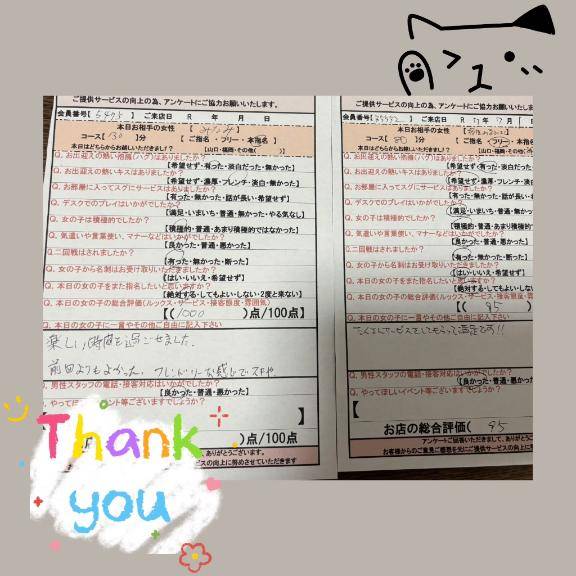 ご提供サービスの向上の為、アンケートにご協力お願いいたします。
会員番号【 】ご来店日 R 年 月 日
本日お相手の女性 【みなみ】
コース【130】分 【ご指名・フリー・本指名】
本日はどちらからお越しいただきましたか?【山口・福岡・その他( )】
Q、お出迎えの熱い抱擁(ハグ)はありましたか?
【希望せず・有った・淡白だった・無かった】
Q、お出迎えの熱いキスはありましたか?
【希望せず・濃厚・フレンチ・淡白・無かった】
Q、お部屋に入ってスグにサービスはありましたか?
【有った・無かった・話が長い・希望せず】
Q、デスクでのプレイはいかがでしたか?
【満足・いまいち・普通・無かった・やる気なし】
Q、女の子は積極的でしたか?
【積極的・普通・あまり積極的ではなかった】
Q、気遣いや言葉使い、マナーなどはいかがでしたか?
【良かった・普通・悪かった】
Q、二回戦はされましたか?
【有った・無かった・断った】
Q、女の子から名刺はお受け取りいただきましたか?
【はい・いいえ・希望せず】
Q、本日の女の子をまた指名したいと思いますか?
【絶対する・してもよい・しない・2度と来ない】
Q、本日の女の子の総合評価(ルックス・サービス・接客態度・雰囲気)
【(1000)点/100点】
Q、本日の女の子に一言やその他ご自由に記入下さい
楽しい時間を過ごせました。
前回よりもよかった。フレンドリーな感じで
Q、男性スタッフの電話・接客対応はいかがでしたか?
【良かった・普通・悪かった】
Q、やってほ
ントございますでしょうか?
】
)点/100点
ありがとうございます。
サービスの向上に努めさせていただきます
ご提供サービスの向上の為、アンケートにご協力お願いいたし
会員番号【 】ご来店日 R 17 年 12 月
本日お相手の女性 【
コース【80】分 【ご指名・フリー・本
本日はどちらからお越しいただきましたか?【山口・福岡・その他(
Q、お出迎えの熱い抱擁(ハグ)はありましたか?
【希望せず・有った・淡白だった・無
Q、お出迎えの熱いキスはありましたか?
【希望せず・濃厚・フレンチ・淡白・無
Q、お部屋に入ってスグにサービスはありましたか?
【有った・無かった・話が長い・希
Q、デスクでのプレイはいかがでしたか?
【満足・いまいち・普通・無か
Q、女の子は積極的でしたか?
【積極的・普通・あまり積極的では
Q、気遣いや言葉使い、マナーなどはいかがでしたか?
【良かった・普通・悪か
Q、二回戦はされましたか?
【有った・無かった・断
Q、女の子から名刺はお受け取りいただきましたか?
【はい・いいえ・希望
Q、本日の女の子をまた指名したいと思いますか?
【絶対する・してもよい・しない・2
Q、本日の女の子の総合評価(ルックス・サービス・接客態度・
【( 95
Q、本日の女の子に一言やその他ご自由に記入下さい
サービスをしてもらって満足です!!
Q、男性スタッフの電話・接客対応はいかがでしたか?
【良かった・普通・悪か
Q、やってほしいイベント等ございますでしょうか?
【
お店の総合評価( 95
アンケートご回答いただきまして、ありがとうご
お客様からのご意見ご感想を元にご提供サービスの向上に
Thank
you